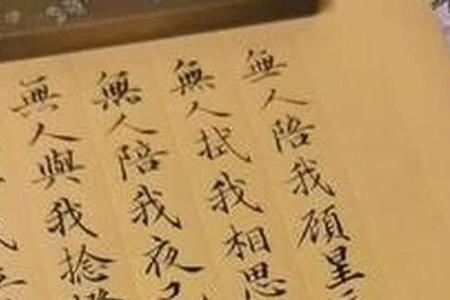 無人陪我顧星
無人拭我相思
無人陪我夜
無人與我捻